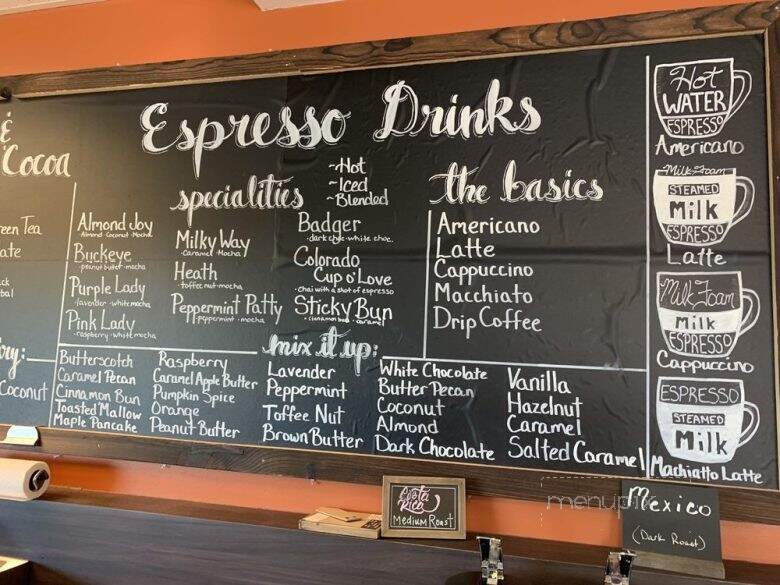 &
Cocoa
Espresso Drinks
specialities
~Hot
~Iced
~Blended
the basics
een Tea
ate
ck
bal
Almond Joy
Almond·Coconut·Mocha
Buckeye
·peanut butter·mocha
Purple Lady
·lavender·white mocha
Pink Lady
·raspberry·white mocha
Milky Way
·Caramel·Mocha
Heath
·toffee nut·mocha
Peppermint Patty
·peppermint·mocha
Badger
·dark choc·white choc.
Colorado
Cup o' Love
·chai with a shot of espresso
Sticky Bun
·cinnamon bun·caramel
Americano
Latte
Cappuccino
Macchiato
Drip Coffee
mix it up:
ry:
Coconut
Butterscotch
Caramel Pecan
Cinnamon Bun
Toasted Mallow
Maple Pancake
Raspberry
Caramel Apple Butter
Pumpkin Spice
Orange
Peanut Butter
Lavender
Peppermint
Toffee Nut
Brown Butter
White Chocolate
Butter Pecan
Coconut
Almond
Dark Chocolate
Vanilla
Hazelnut
Caramel
Salted Caramel
Hot
WATER
ESPRESSO
Americano
Milk Foam
STEAMED
Milk
ESPRESSO
Latte
Milk Foam
Milk
ESPRESSO
Cappuccino
ESPRESSO
STEAMED
Milk
Machiatto Latte
Costa
Rica
Medium Roast
Mexico
(Dark Roast)